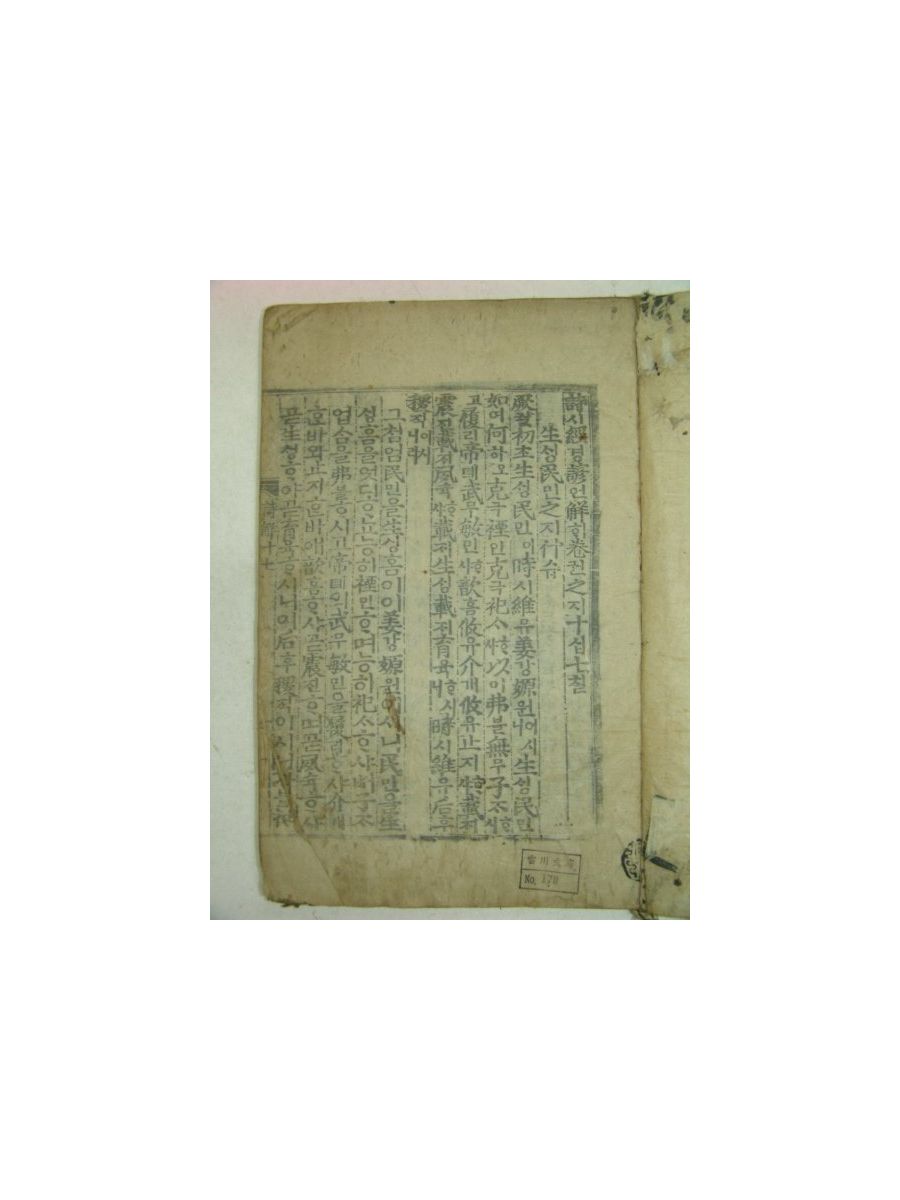 詩시經경諺언解해卷권之지十십七칠
生싱民민之지什습
厥궐初초生싱民민이時시維유姜강嫄원이시니生싱民민
如여何하오克극禋인克극祀ᄉᆞᄒᆞ샤以이弗불無무子ᄌᆞᄒᆞ시
고履리帝뎨武무敏민ᄒᆞ샤歆흠攸유介개攸유止지ᄒᆞ샤載ᄌᆡ
震진載ᄌᆡ夙슉ᄒᆞ샤載ᄌᆡ生싱載ᄌᆡ育육ᄒᆞ시니時시維유后후
稷직이시니라
그처엄民민을生싱홈이이姜강嫄원이시니民민을生
싱홈을엇디ᄒᆞ뇨能히禋인ᄒᆞ며能히祀ᄉᆞᄒᆞ샤子ᄌᆞ
업슴을弗불ᄒᆞ시고帝뎨의武무敏민을履리ᄒᆞ샤介개
ᄒᆞᆫ바와止지ᄒᆞᆫ바애歆흠ᄒᆞ샤곧震진ᄒᆞ며곧夙슉ᄒᆞ샤
곧生싱ᄒᆞ야곧育육ᄒᆞ시니이后후稷직이시니라
詩解十七
No. 170